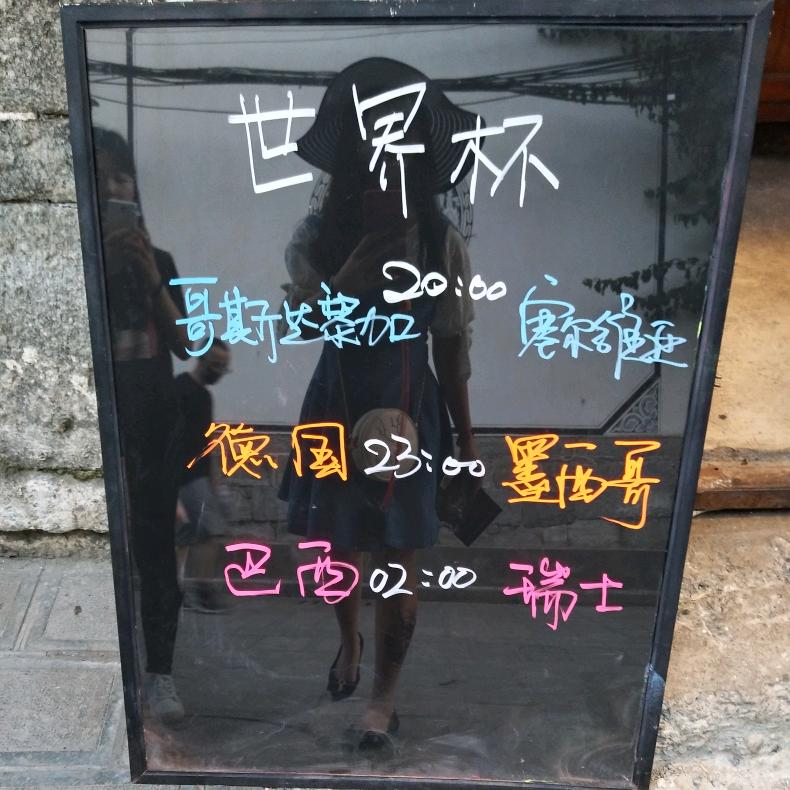 世界杯
哥斯达黎加 20:00 塞尔维亚
德国 23:00 墨西哥
巴西 02:00 瑞士